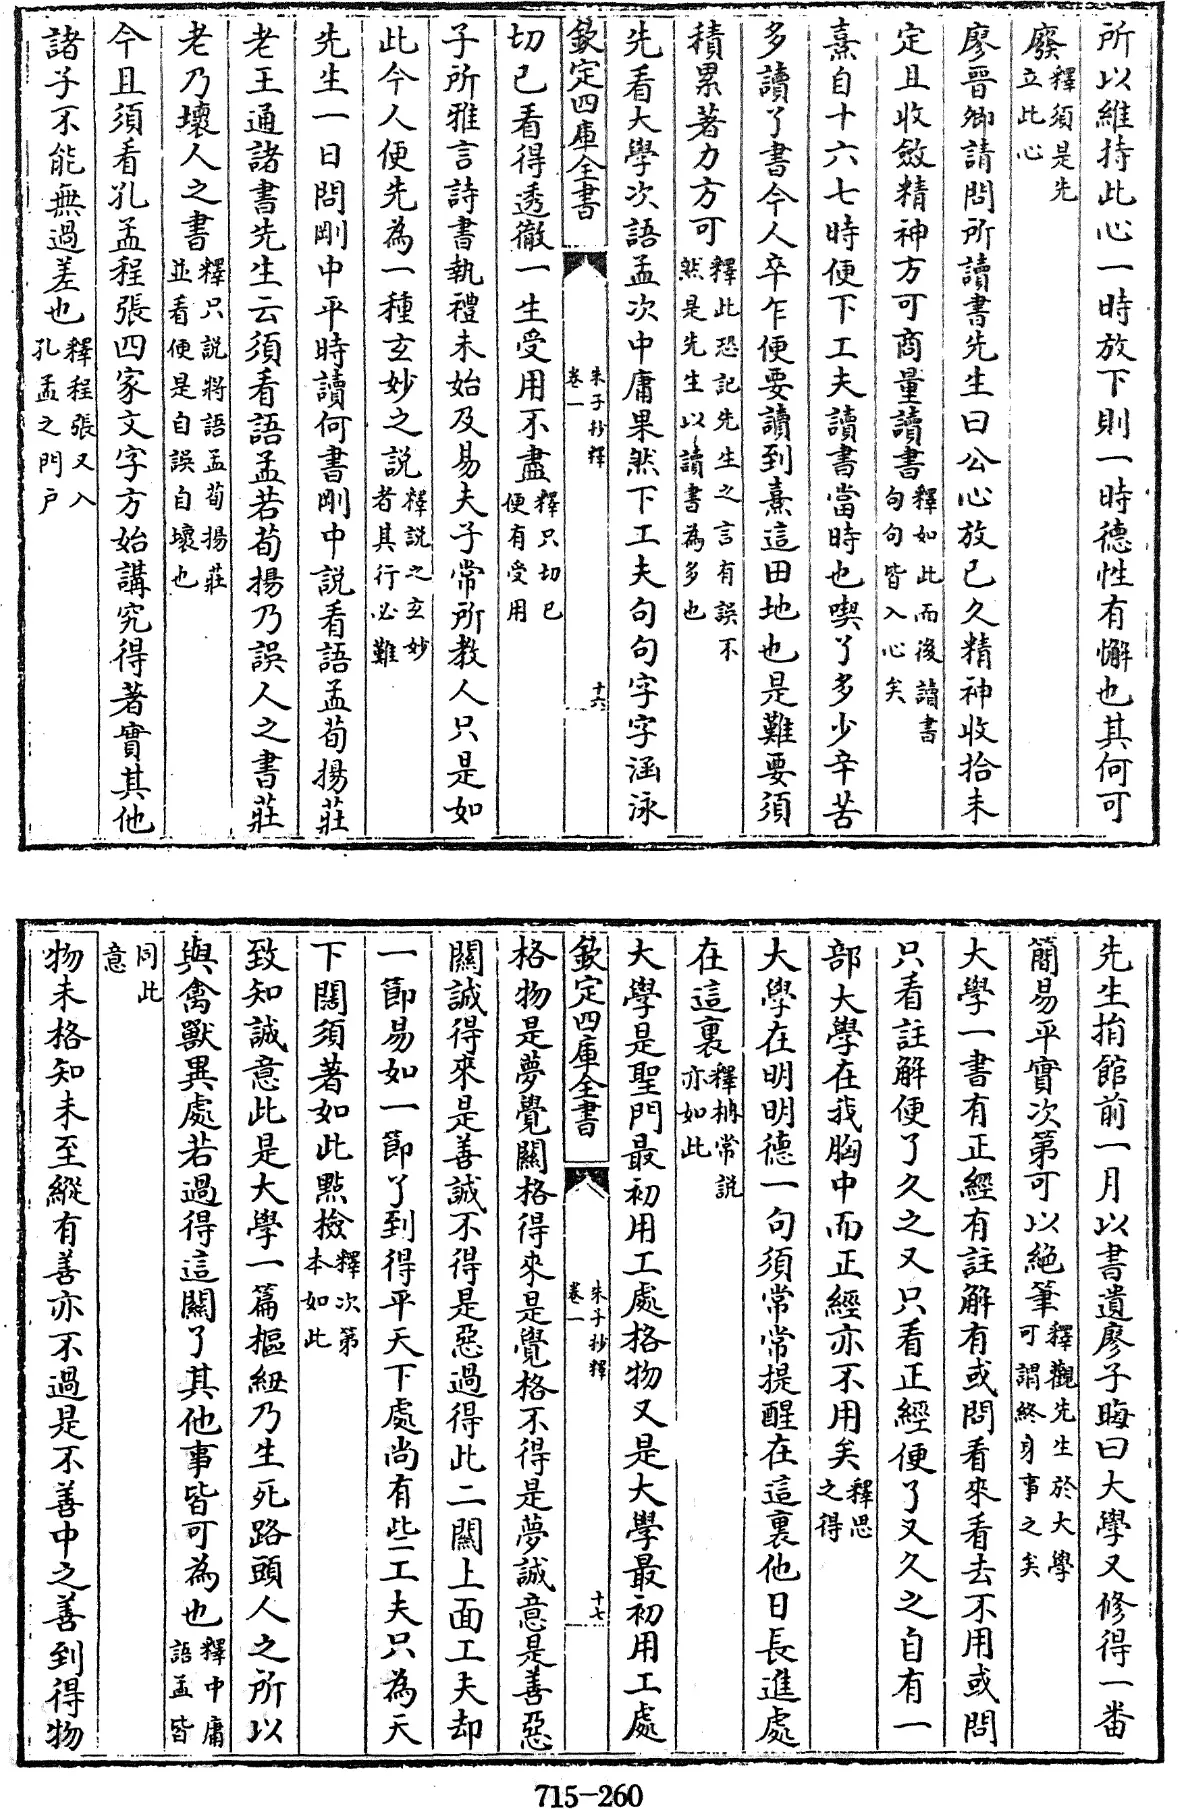 所以維持此心一時放下則一時德性有懈也其何可
廢釋須是先立此心
廖晉卿請問所讀書先生曰公心放已久精神收拾未
定且收斂精神方可商量讀書釋如此而後讀書句句皆入心矣
熹自十六七時便下工夫讀書當時也喫了多少辛苦
多讀了書今人卒乍便要讀到熹這田地也是難要須
積累著力方可釋此恐記先生之言有誤不然是先生以讀書為多也
先看大學次語孟次中庸果然下工夫句句字字涵泳
欽定四庫全書
朱子抄釋
卷一
十六
切已看得透徹一生受用不盡釋只切已便有受用
子所雅言詩書執禮未始及易夫子常所教人只是如
此今人便先為一種玄妙之說釋說之玄妙者其行必難
先生一日問剛中平時讀何書剛中說看語孟荀揚莊
老王通諸書先生云須看語孟若荀揚乃誤人之書莊
老乃壞人之書釋只說將語孟荀揚莊並看便是自誤自壞也
今且須看孔孟程張四家文字方始講究得著實其他
諸子不能無過差也釋程張又入孔孟之門戶
先生捐館前一月以書遺廖子晦曰大學又修得一番
簡易平實次第可以絶筆釋觀先生於大學可謂終身事之矣
大學一書有正經有註解有或問看來看去不用或問
只看註解便了久之又只看正經便了又久之自有一
部大學在我胸中而正經亦不用矣釋思之得
大學在明明德一句須常常提醒在這裏他日長進處
在這裏釋柟常說亦如此
大學是聖門最初用工處格物又是大學最初用工處
欽定四庫全書
朱子抄釋
卷一
十七
格物是夢覺關格得來是覺格不得是夢誠意是善惡
關誠得來是善誠不得是惡過得此二關上面工夫却
一節易如一節了到得平天下處尚有些工夫只為天
下闊須著如此點檢釋次第本如此
致知誠意此是大學一篇樞紐乃生死路頭人之所以
與禽獸異處若過得這關了其他事皆可為也釋中庸語孟皆
同此意
物未格知未至縱有善亦不過是不善中之善到得物
715-260